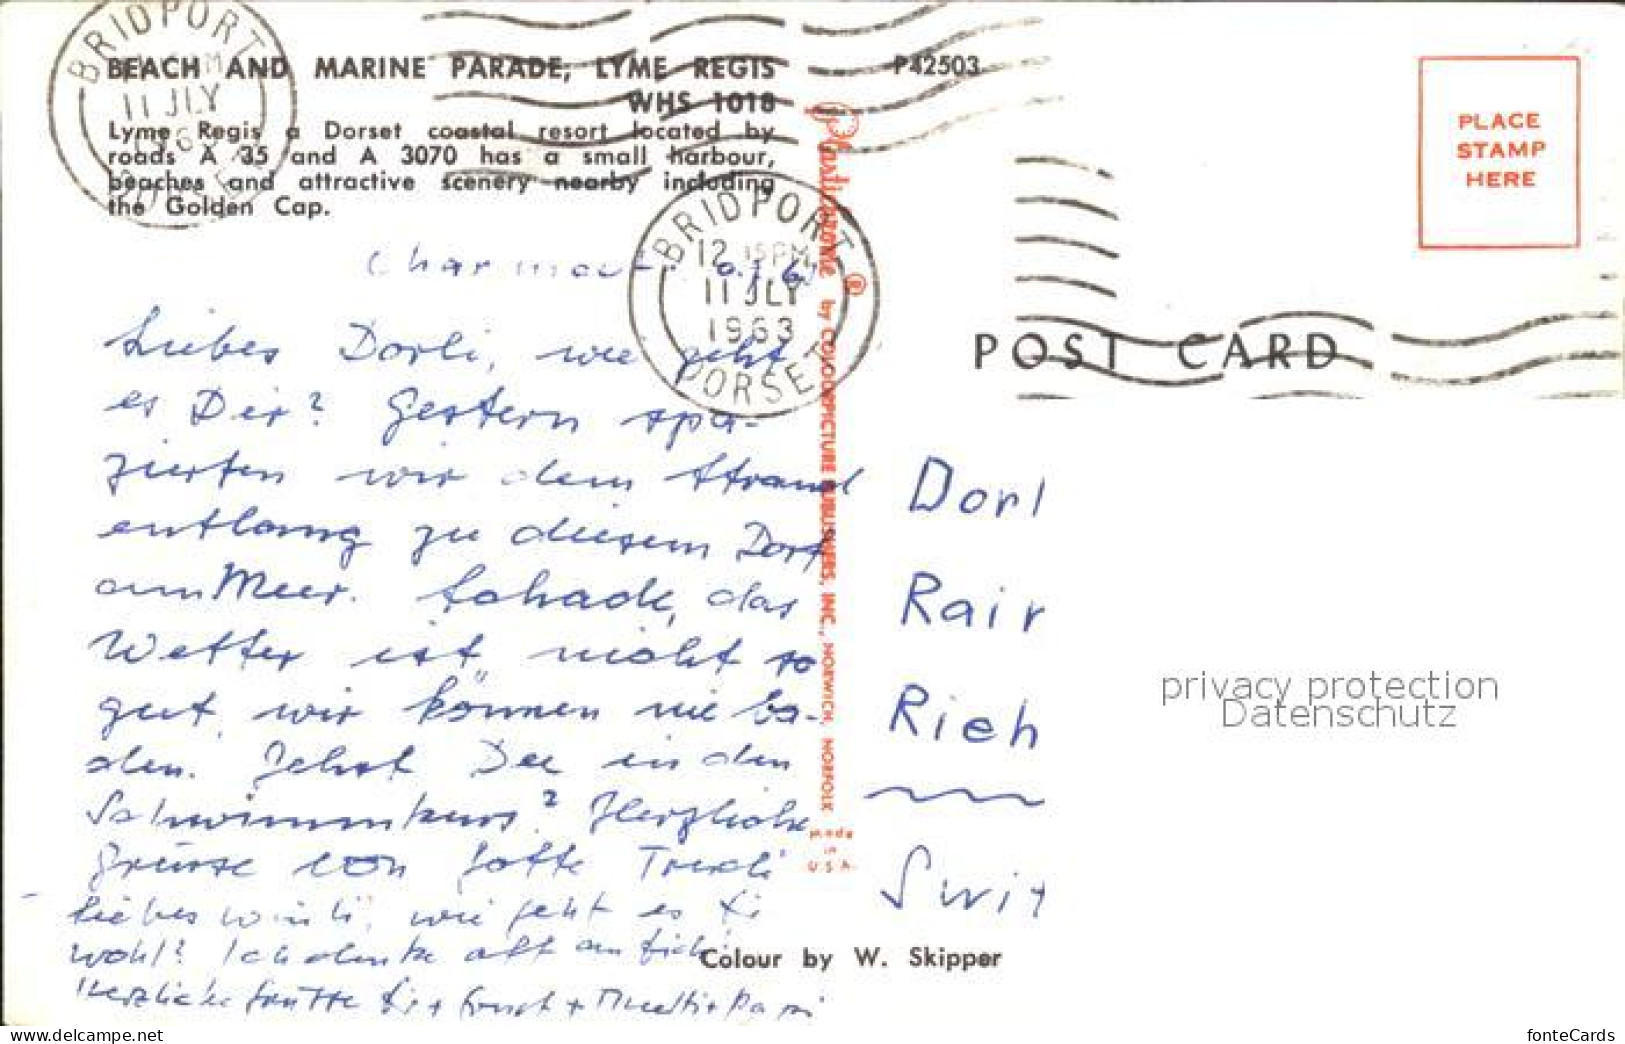 BRIDPORT
11 JLY
BEACH AND MARINE PARADE, LYME REGIS
P42503
WHS 1018
Lyme Regis a Dorset coastal resort located by
roads A 35 and A 3070 has a small harbour,
beaches and attractive scenery nearby including
the Golden Cap.
PLACE
STAMP
HERE
BRIDPORT
12 15 PM
11 JLY
1963
DORSET
Plastichrome ® by COLOURPICTURE PUBLISHERS, INC., NORWICH, NORFOLK
made
in
U.S.A.
POST CARD
Liebes Dorli, wie geht
es Dir? Gestern spa-
zierten wir dem Strand
entlang zu diesem Dorf
am Meer. Schade, das
Wetter ist nicht so
gut, wir können nie ba-
den. Gehst Du in den
Schwimmkurs? Herzliche
Grüsse von Gotte Trudi
Liebes wie geht es Di
wohl? Ich denke oft an Dich
Herzliche
Dorl
Rair
Rieh
Swit
privacy protection
Datenschutz
Colour by W. Skipper
http://www.ansichtskarten-center.de
fonteCards